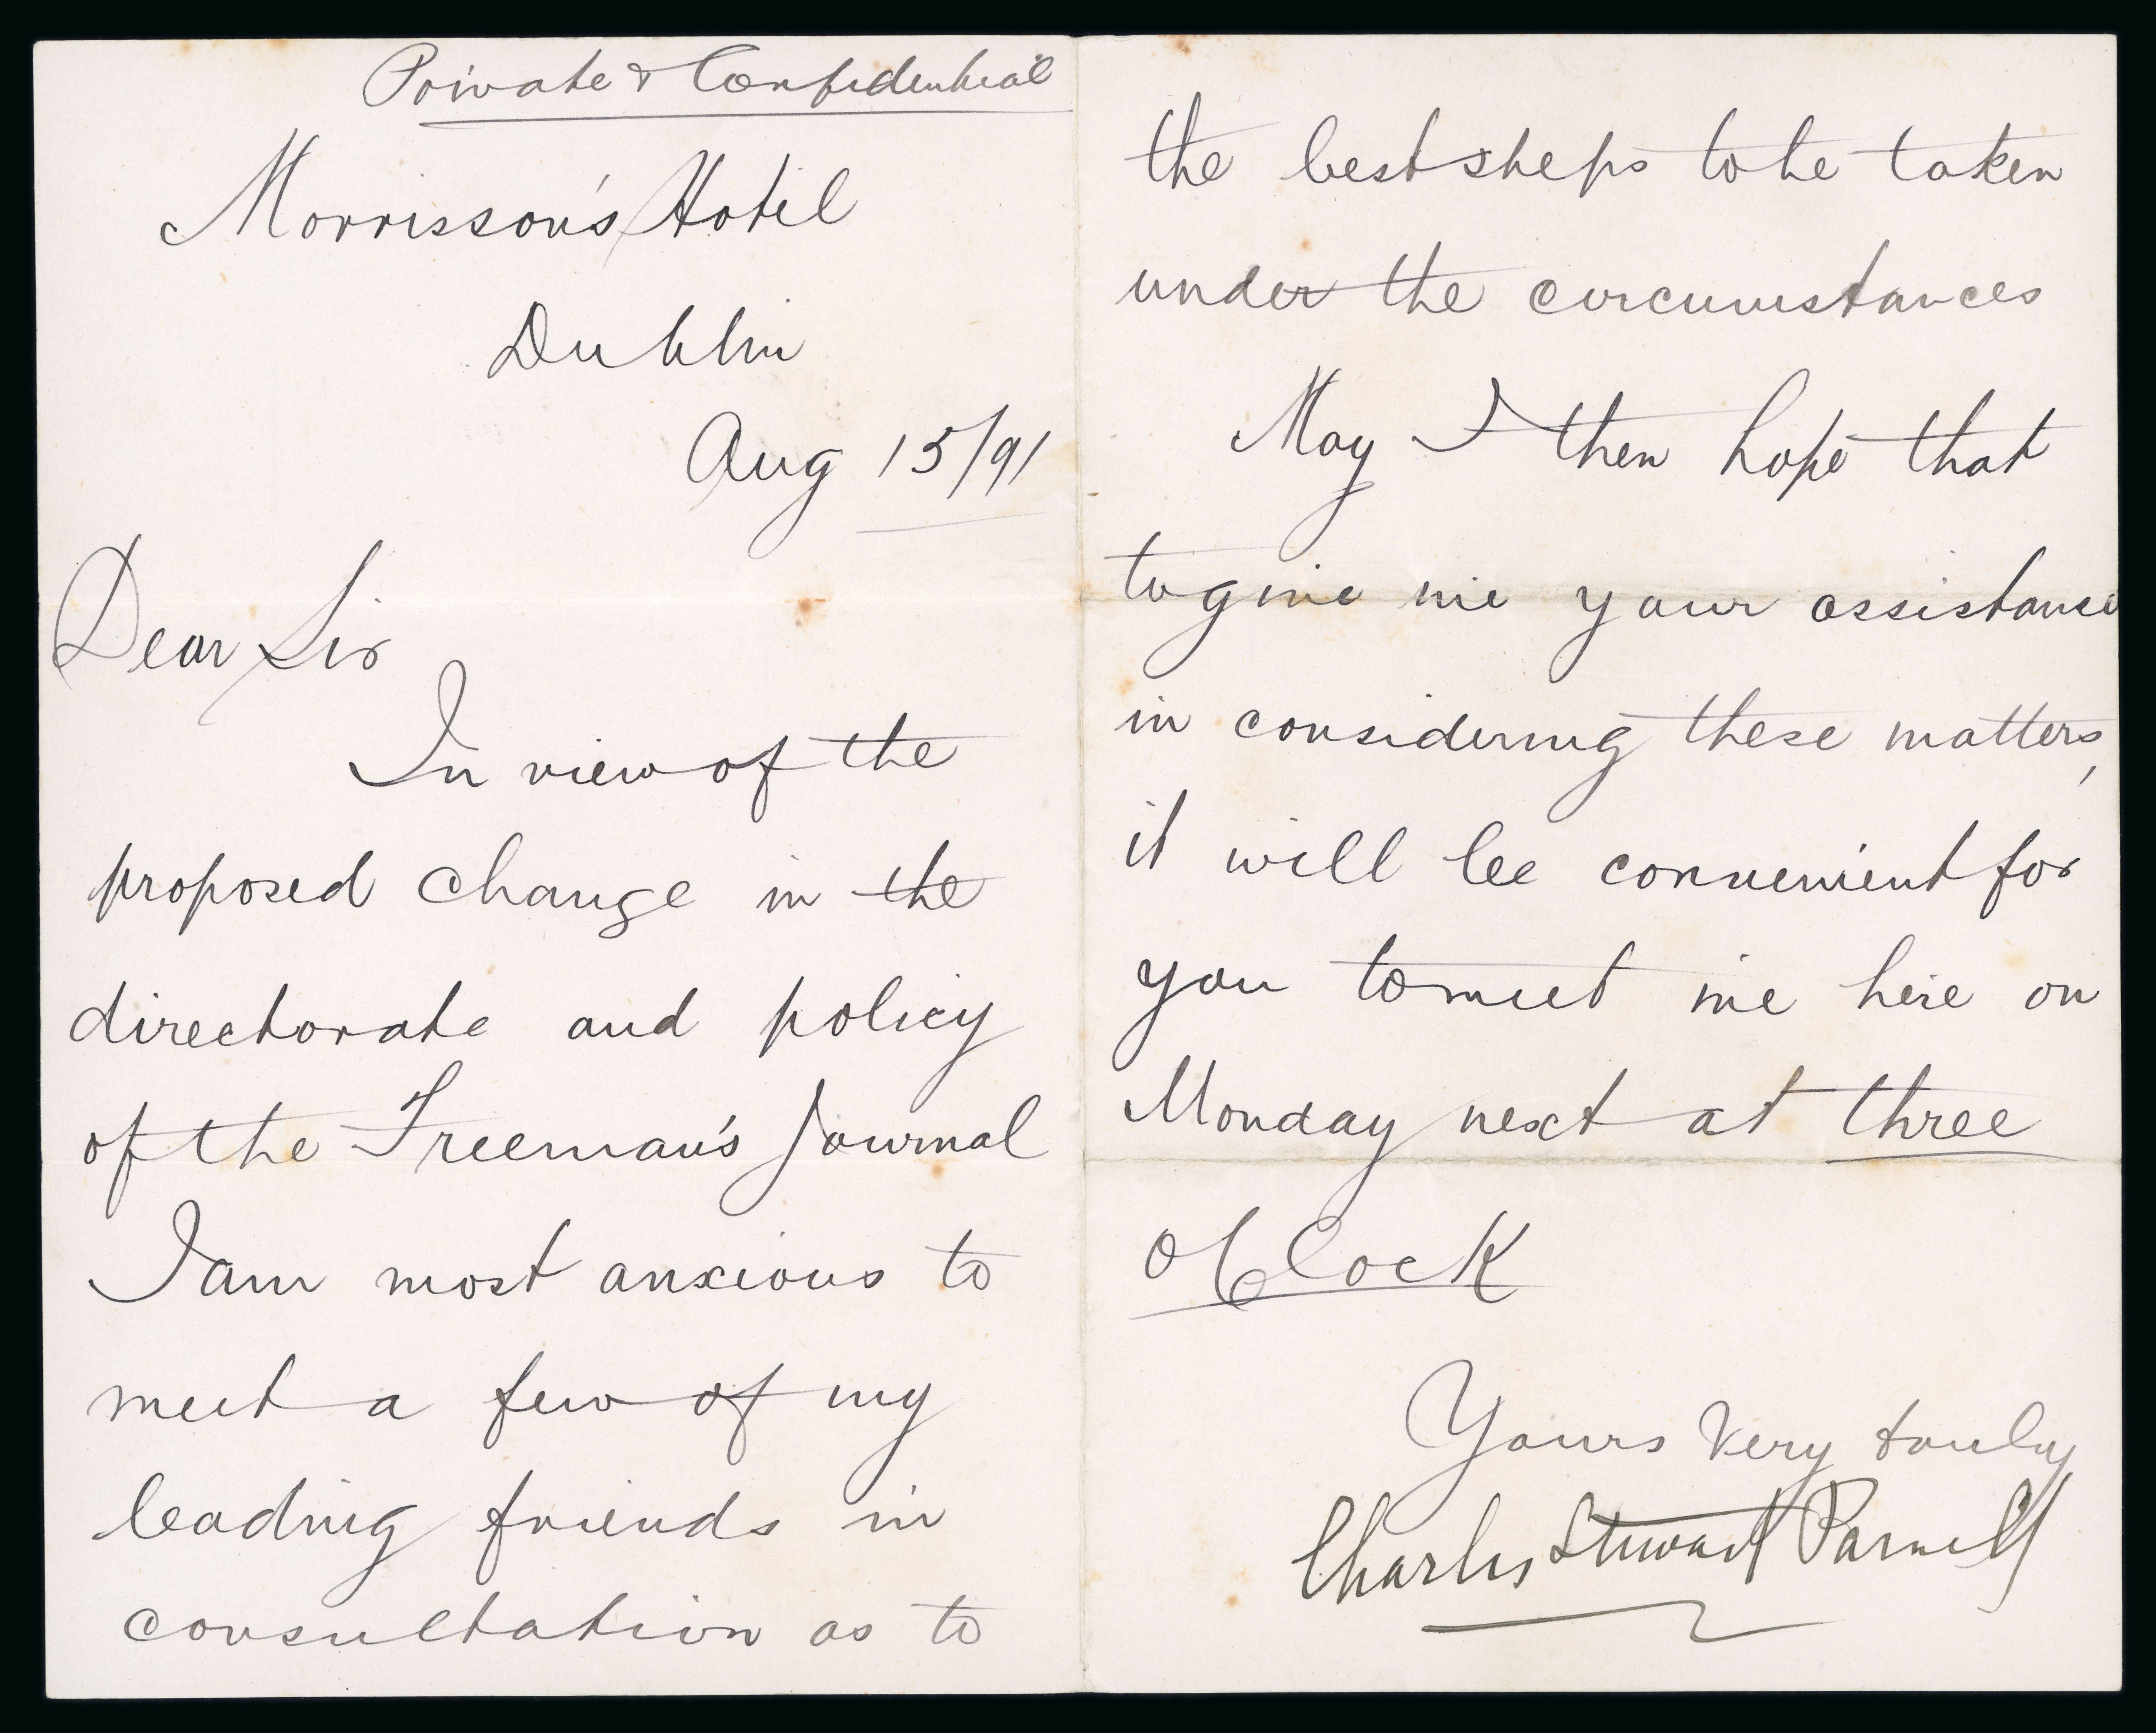 Private & Confidential
Morrisson's Hotel
Dublin
Aug 15/91
Dear Sir
In view of the
proposed change in the
directorate and policy
of the Freeman's Journal
I am most anxious to
meet a few of my
leading friends in
consultation as to
the best steps to be taken
under the circumstances
May I then hope that
to give me your assistance
in considering these matters,
it will be convenient for
you to meet me here on
Monday next at three
O'Clock
Yours Very truly
Charles Stewart Parnell